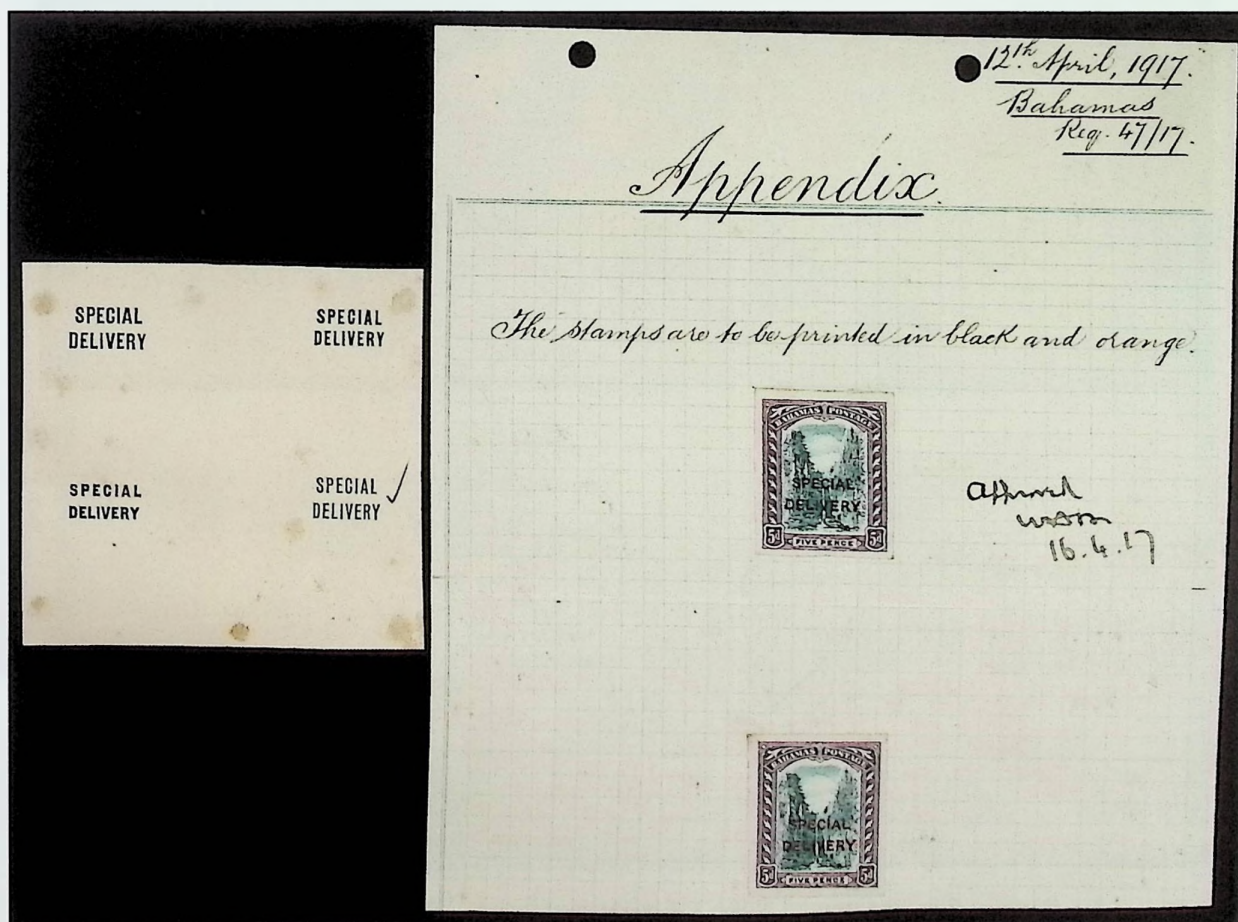 SPECIAL
DELIVERY
SPECIAL
DELIVERY
SPECIAL
DELIVERY
SPECIAL
DELIVERY
12th. April, 1917.
Bahamas
Reg. 47/17.
Appendix.
The stamps are to be printed in black and orange.
BAHAMAS POSTAGE
SPECIAL
DELIVERY
5d FIVE PENCE 5d
Approved
16.4.17
BAHAMAS POSTAGE
SPECIAL
DELIVERY
5d FIVE PENCE 5d